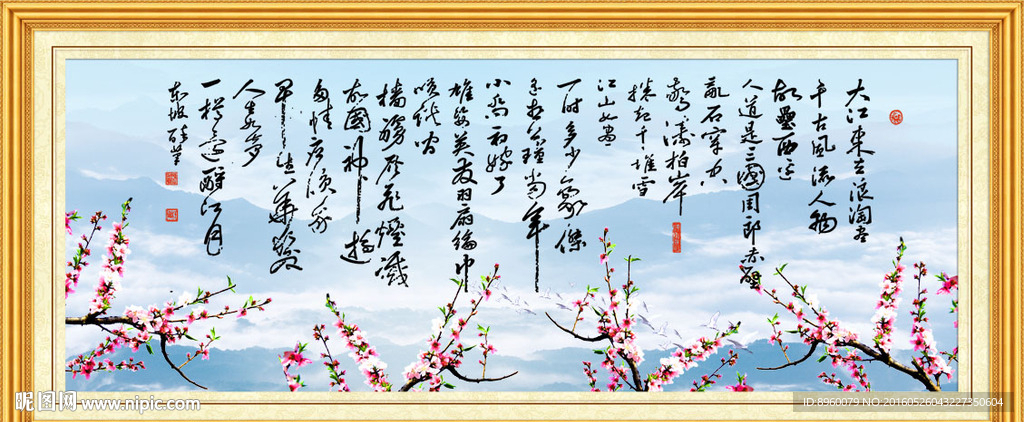 大江东去浪淘尽
千古风流人物
故垒西边
人道是三國周郎赤壁
乱石穿空
惊涛拍岸
捲起千堆雪
江山如画
一时多少豪杰
遥想公瑾当年
小乔初嫁了
雄姿英发羽扇纶巾
谈笑间
樯橹灰飞煙滅
故國神遊
多情应笑我
早生华发
人生如梦
一樽还酹江月
东坡醉笔
昵图网 www.nipic.com
ID:8960079 NO:20160526043227350604